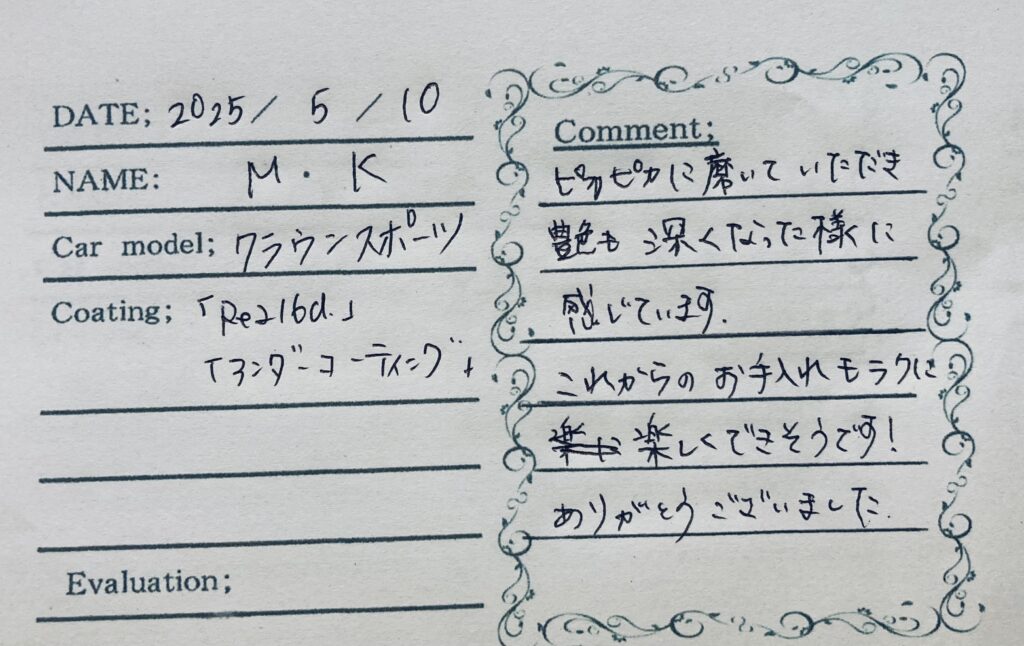 DATE; 2025 / 5 / 10
NAME: M・K
Car model; クラウンスポーツ
Coating;
「アンダーコーティング」
Evaluation;
Comment;
ピカピカに磨いていただき
艶も深くなった様に
感じています.
これからのお手入れもラクに
楽しくできそうです!
ありがとうございました.